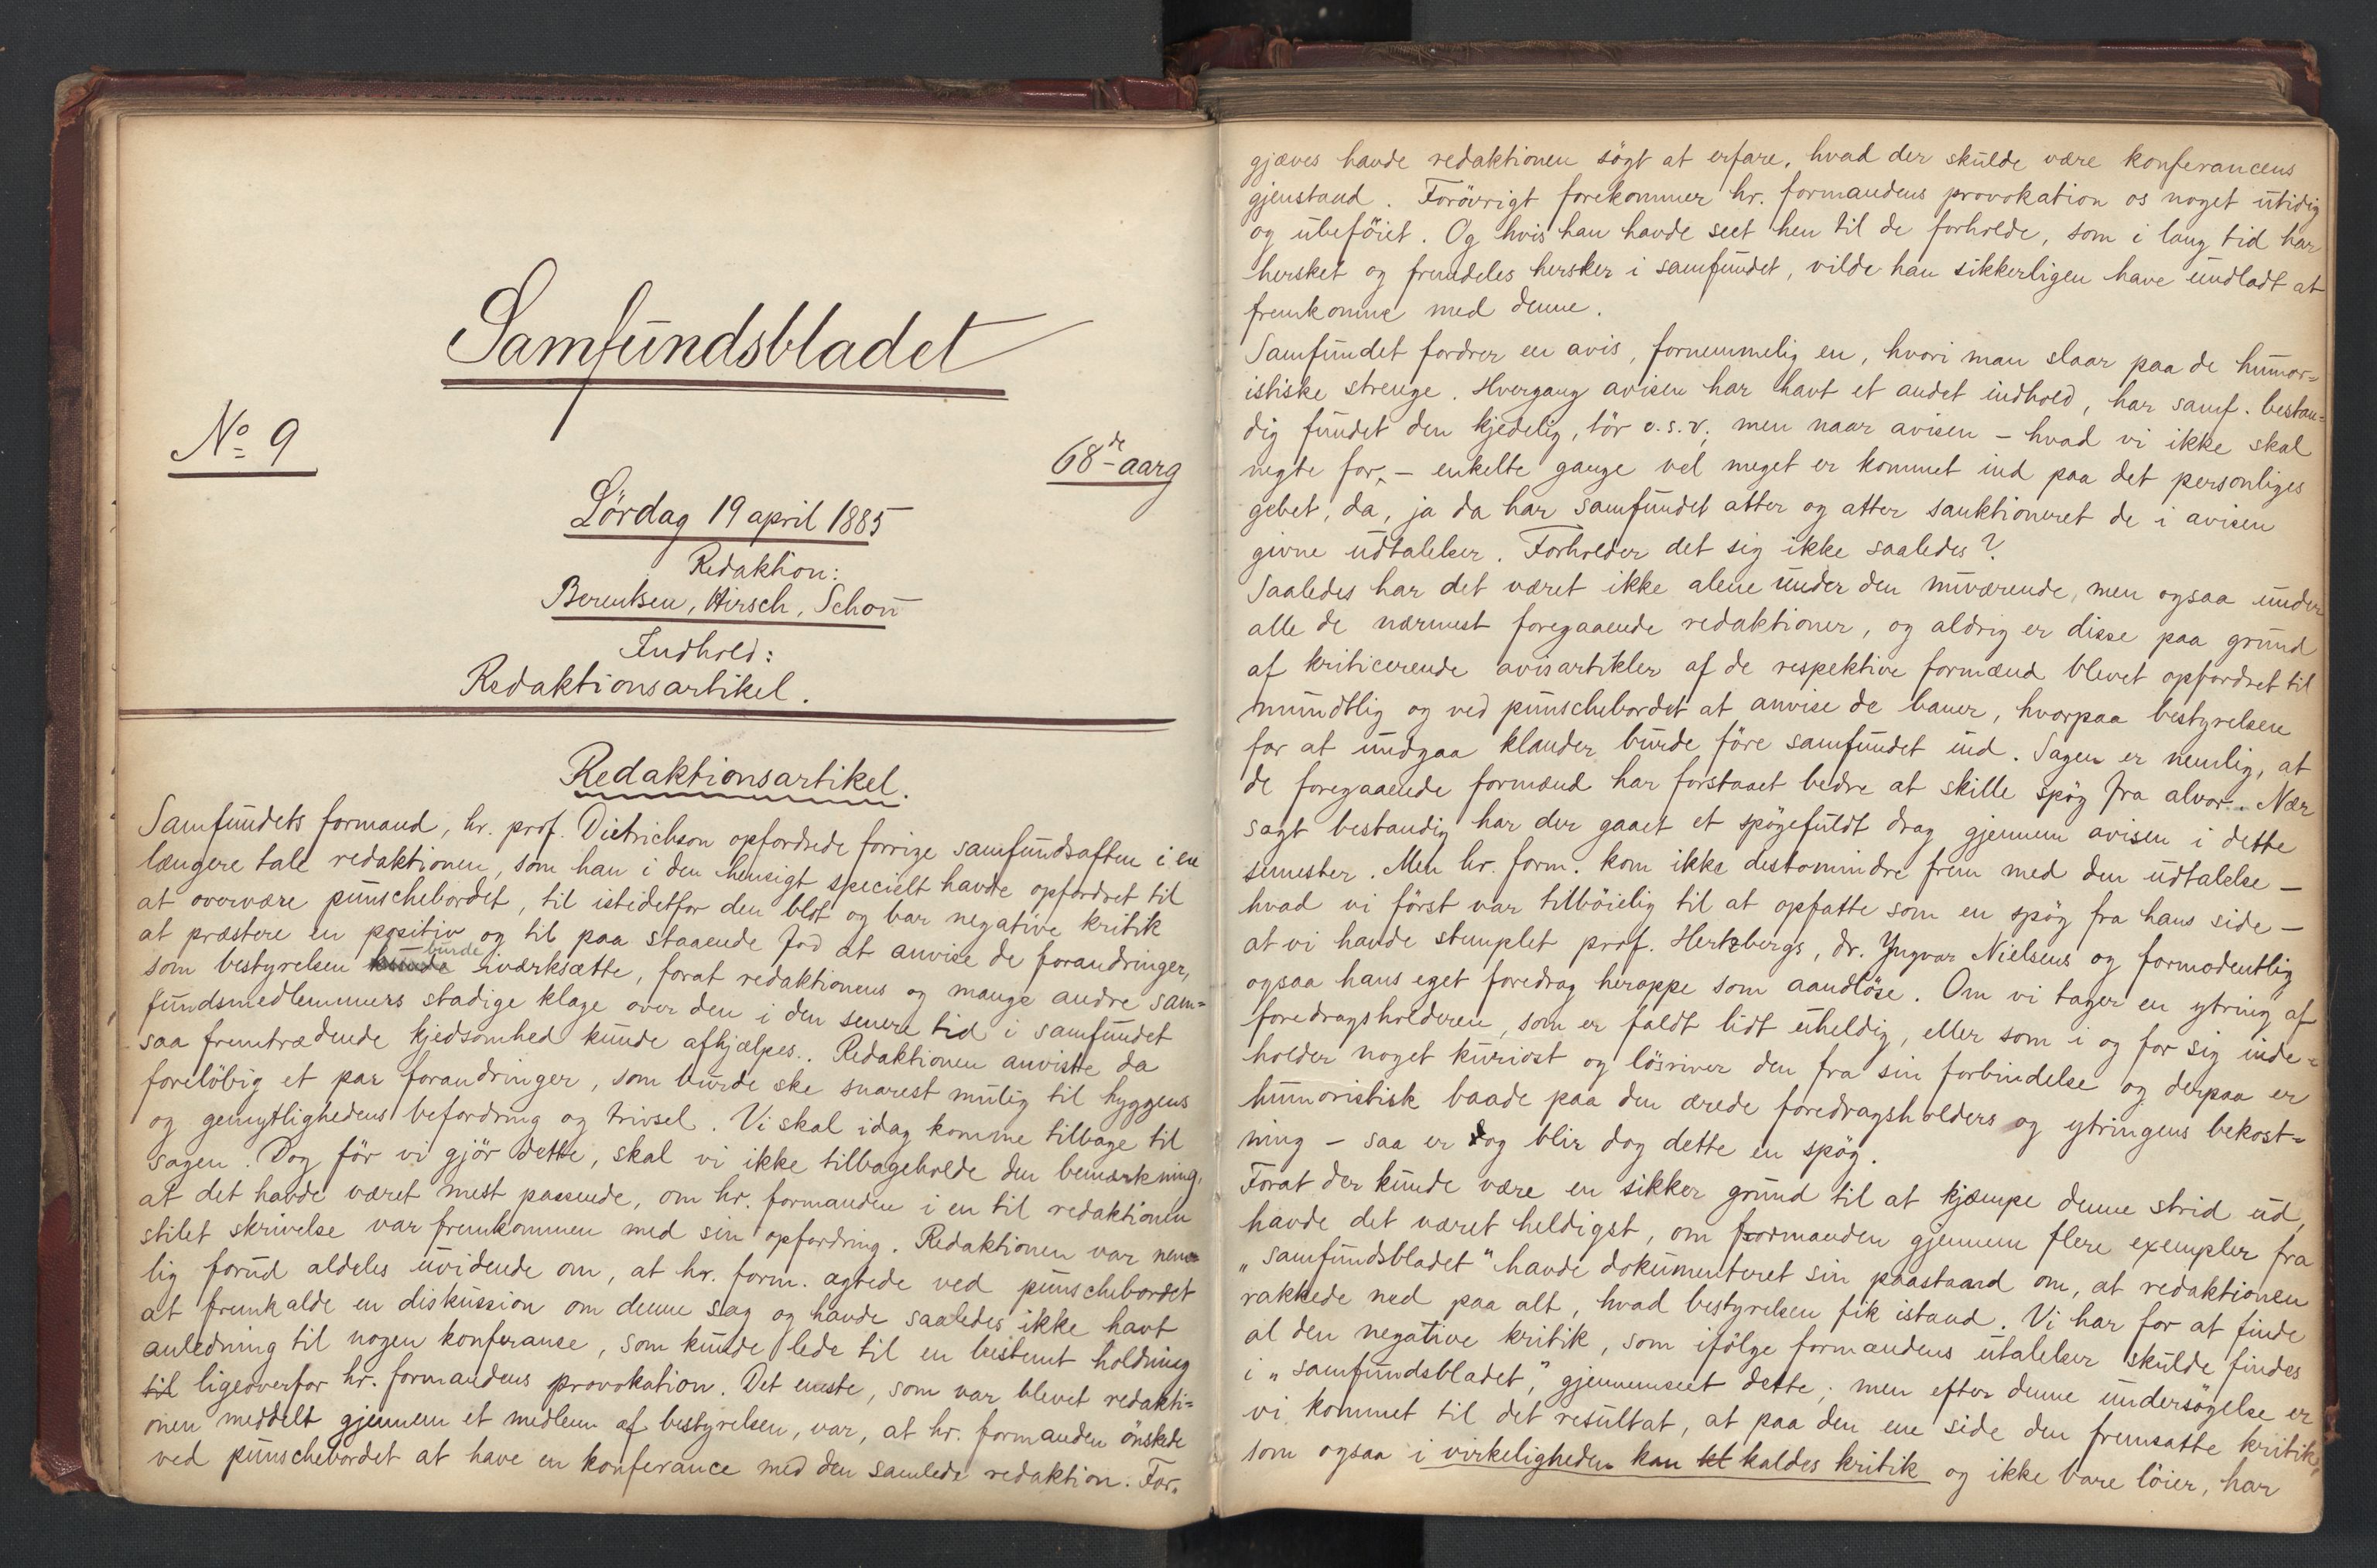 Samfundsbladet
No 9
68de aarg
Lördag 19 april 1885
Redaktion:
Berentsen, Hirsch, Schou
Indhold:
Redaktionsartikel.
Redaktionsartikel.
Samfundets formand, hr. prof. Dietrichson opfordrede forrige samfundsaften i en
længere tale redaktionen, som han i den hensigt specielt havde opfordret til
at overvære punschebordet, til istedetfor den blot og bar negative kritik
at præstere en positiv og til paa staaende fod at anvise de forandringer,
som bestyrelsen burde iværksætte, forat redaktionens og mange andre sam=
fundsmedlemmers stadige klage over den i den senere tid i samfundet
saa fremtrædende kjedsomhed kunde afhjælpes. Redaktionen anviste da
foreløbig et par forandringer, som burde ske snarest mulig til hyggens
og gemytlighedens befordring og trivsel. Vi skal idag komme tilbage til
sagen. Dog för vi gjör dette, skal vi ikke tilbageholde den bemærkning,
at det havde været mest passende, om hr. formanden i en til redaktionen
stilet skrivelse var fremkommen med sin opfordring. Redaktionen var nem=
lig forud aldeles uvidende om, at hr. form. agtede ved punschebordet
at fremkalde en diskussion om denne sag og havde saaledes ikke havt
anledning til nogen konferanse, som kunde lede til en bestemt holdning
til ligeoverfor hr. formandens provokation. Det eneste, som var blevet redakti=
onen meddelt gjennem et medlem af bestyrelsen, var, at hr. formanden önskede
ved punschebordet at have en konferance med den samlede redaktion. For=
gjæves havde redaktionen sögt at erfare, hvad der skulde være konferancens
gjenstand. Forövrigt forekommer hr. formandens provokation os noget utidig
og ubeföiet. Og hvis han havde seet hen til de forholde, som i lang tid har
hersket og fremdeles hersker i samfundet, vilde han sikkerligen have undladt at
fremkomme med denne.
Samfundet fordrer en avis, fornemmelig en, hvori man slaar paa de humor=
istiske strenge. Hvergang avisen har havt et andet indhold, har samf. bestan=
dig fundet den kjedelig, tör o.s.v; men naar avisen – hvad vi ikke skal
negte for, – enkelte gange vel meget er kommet ind paa det personliges
gebet, da, ja da har samfundet atter og atter sanktioneret de i avisen
givne udtalelser. Forholder det sig ikke saaledes?
Saaledes har det været ikke alene under den nuværende, men ogsaa under
alle de nærmest foregaaende redaktioner, og aldrig er disse paa grund
af kriticerende avisartikler af de respektive formænd blevet opfordret til
mundtlig og ved punschebordet at anvise de baner, hvorpaa bestyrelsen
for at undgaa klander burde före samfundet ind. Sagen er nemlig, at
de foregaaende formænd har forstaaet bedre at skille spög fra alvor. Nær
sagt bestandig har der gaaet et spögefuldt drag gjennem avisen i dette
semester. Men hr. form. kom ikke destomindre frem med den udtalelse –
hvad vi först var tilböielig til at opfatte som en spög fra hans side –
at vi havde stemplet prof. Hertzbergs, dr. Yngvar Nielsens og formodentlig
ogsaa hans eget foredrag heroppe som aandlöse. Om vi tager en ytring af
foredragsholderen, som er faldt lidt uheldig, eller som i og for sig inde=
holder noget kuriöst og lösriver den fra sin forbindelse og derpaa er
humoristisk baade paa den ærede foredragsholders og ytringens bekost=
ning – saa er og blir dog dette en spög.
Forat der kunde være en sikker grund til at kjæmpe denne strid ud,
havde det været heldigst, om formanden gjennem flere exempler fra
"samfundsbladet" havde dokumenteret sin paastand om, at redaktionen
rakkede ned paa alt, hvad bestyrelsen fik istand. Vi har for at finde
al den negative kritik, som ifölge formandens utalelser skulde findes
i "samfundsbladet," gjennemseet dette; men efter denne undersögelse er
vi kommet til det resultat, at paa den ene side den fremsatte kritik,
som ogsaa i virkeligheden kan kaldes kritik og ikke bare löier, har